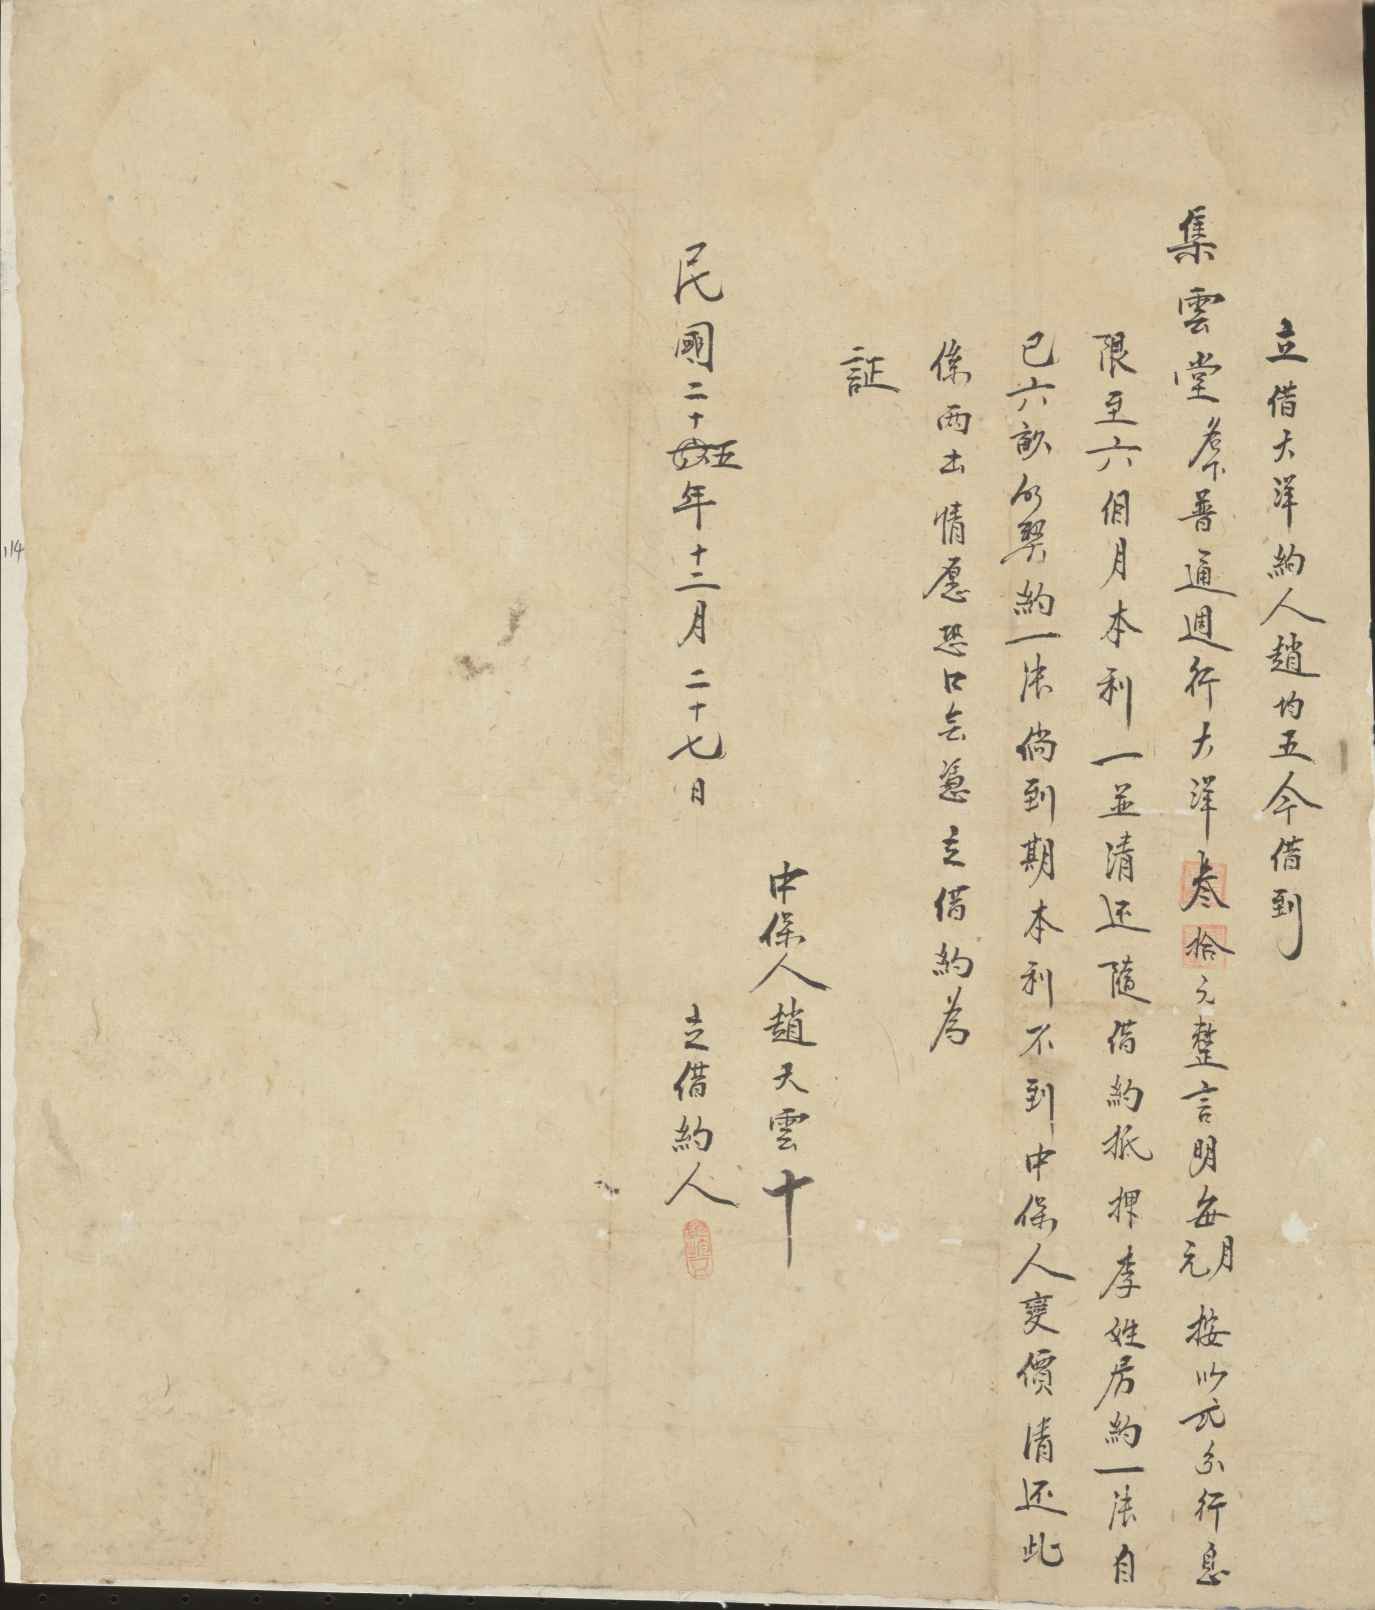 立借大洋約人趙均五今借到
集雲堂名下普通週行大洋叁拾元整言明每元月按以弍分行息
限至六個月本利一並清还隨借約抵押李姓房約一张自
己六畝分契約一张倘到期本利不到中保人变價清还此
係两出情愿恐口無憑立借約為
証
中保人趙天雲十
民國二十五年十二月二十七日
立借約人
114